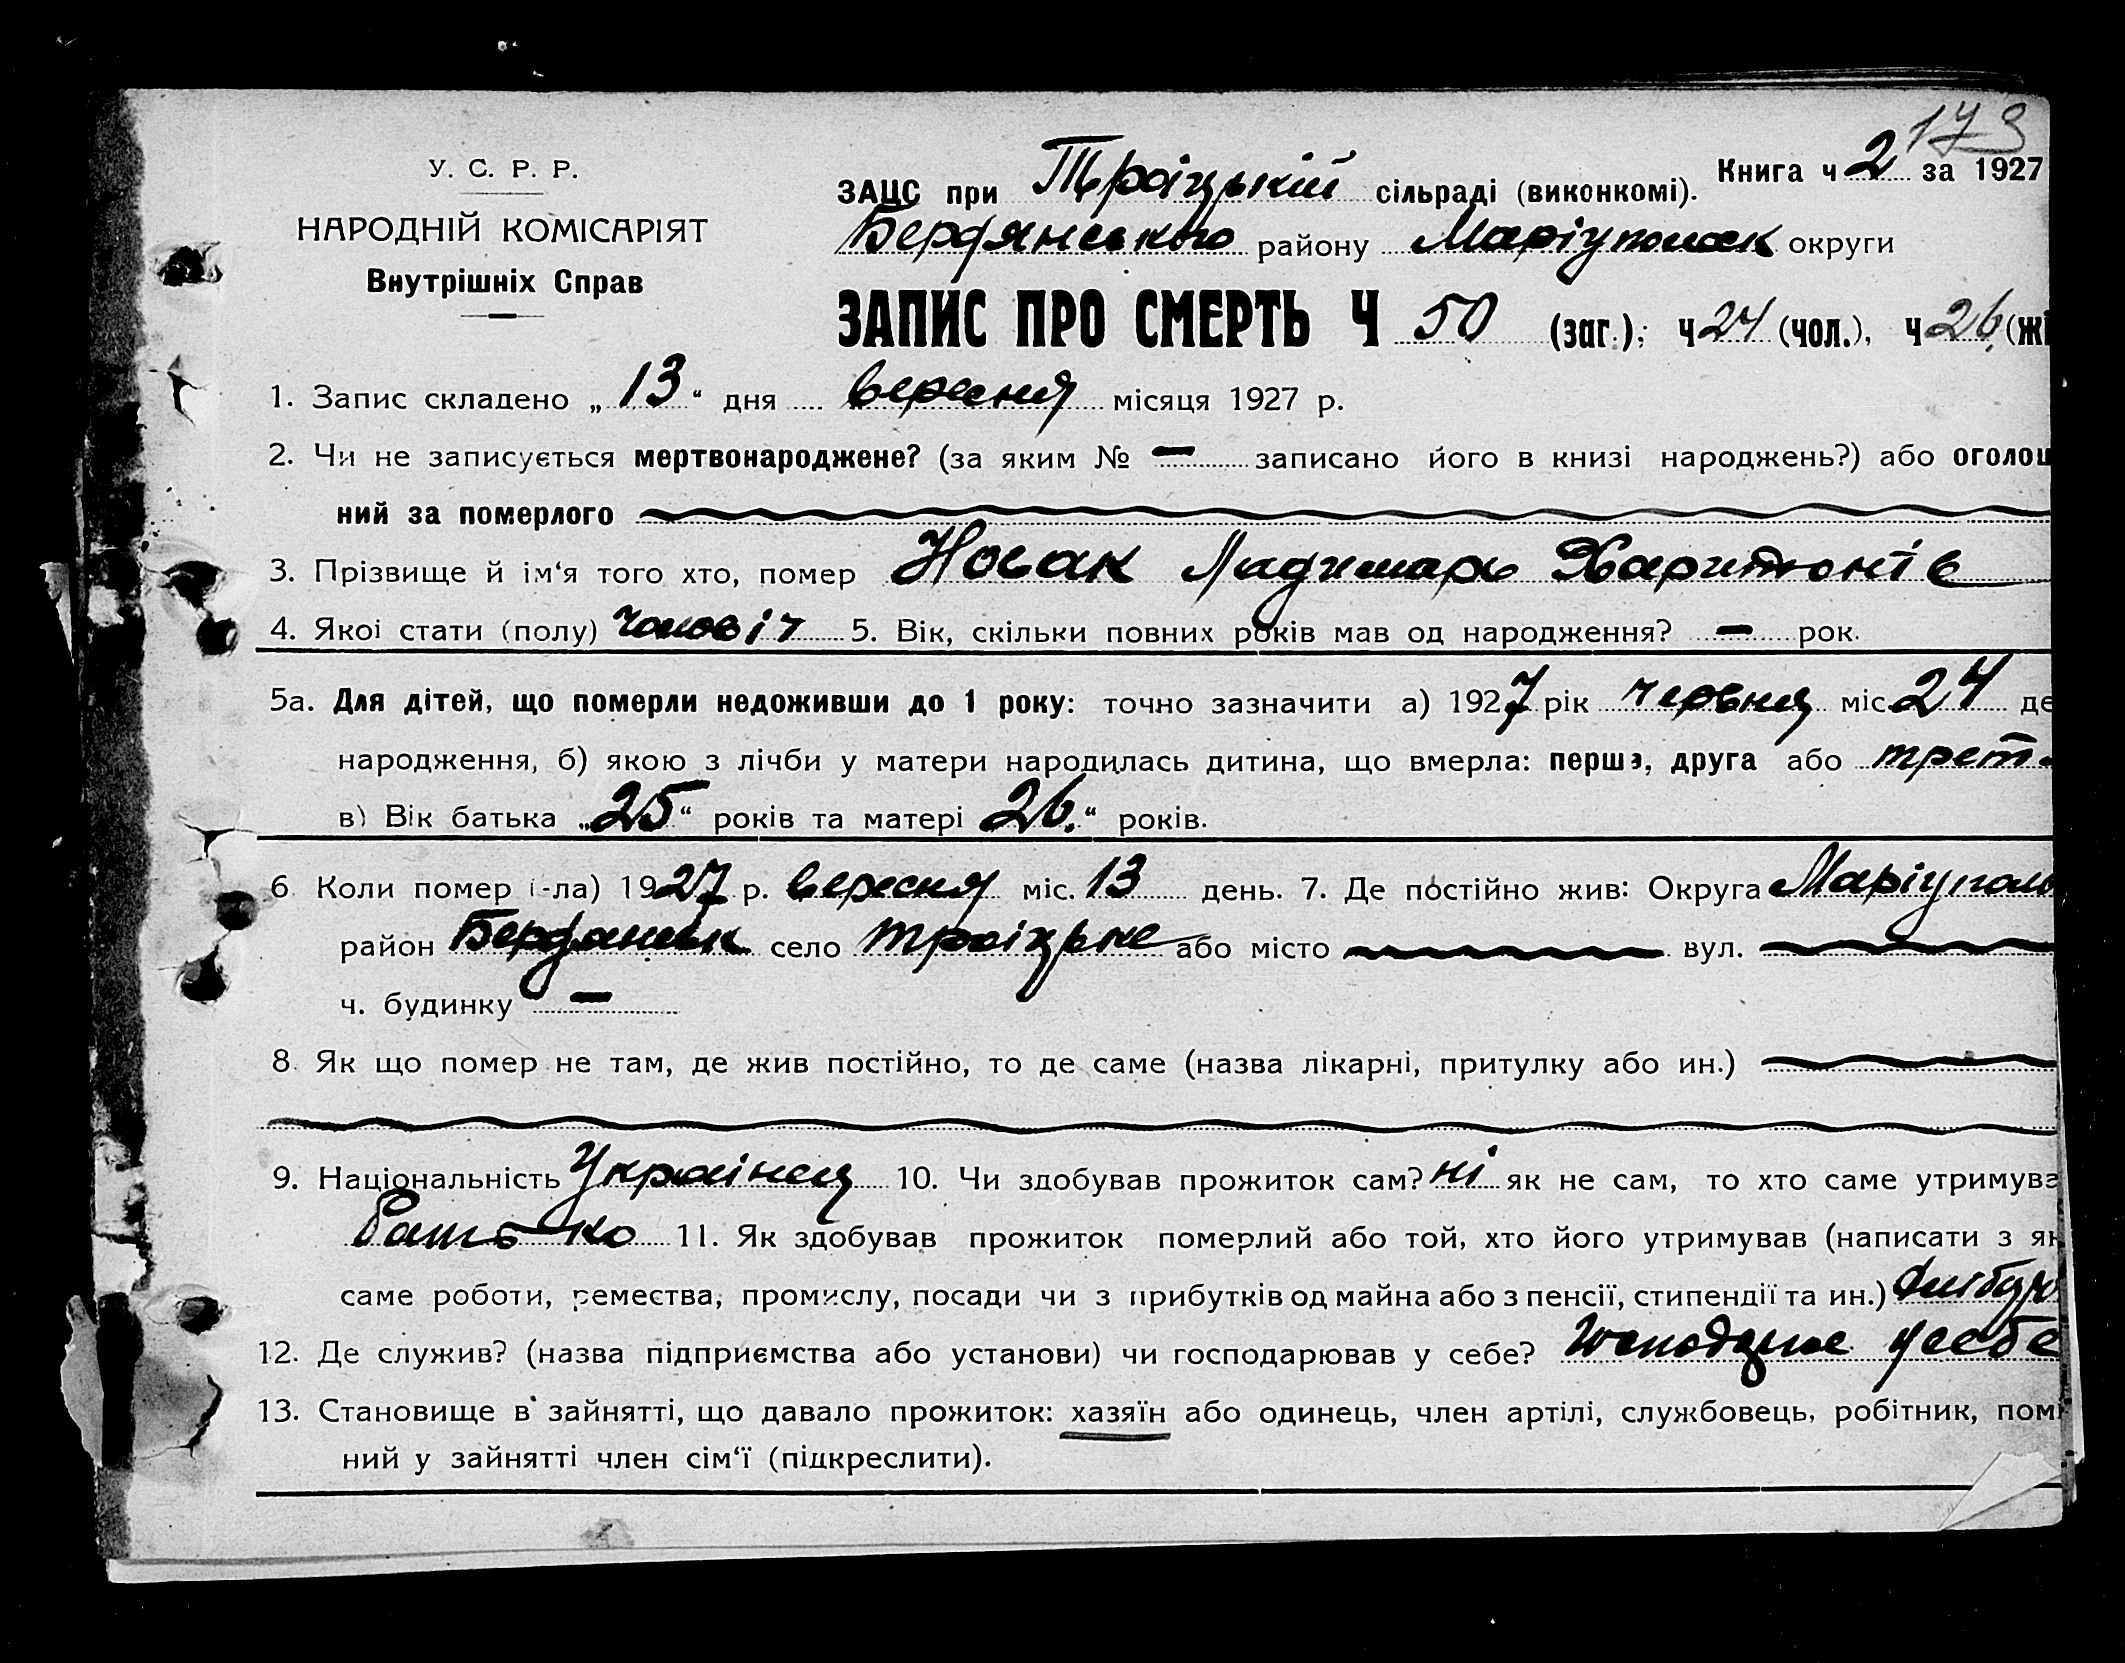 173
У. С. Р. Р.
НАРОДНІЙ КОМІСАРІЯТ
Внутрішніх Справ
Книга ч 2 за 1927
ЗАЦС при Троіцькій сільраді (виконкомі).
Бердянського району Маріупольск округи
ЗАПИС ПРО СМЕРТЬ Ч 50 (заг.); ч 24 (чол.), ч 26 (жі
1. Запис складено „13“ дня вересня місяця 1927 р.
2. Чи не записується мертвонароджене? (за яким № — записано його в книзі народжень?) або оголош
ний за померлого
3. Прізвище й ім‘я того хто, помер Носак Харитонів
4. Якоі стати (полу) чоловіч 5. Вік, скільки повних років мав од народження? — рок.
5а. Для дітей, що померли недоживши до 1 року: точно зазначити а) 1927 рік червня міс. 24 де
народження, б) якою з лічби у матери народилась дитина, що вмерла: перша, друга або трет
в) Вік батька „25“ років та матері 26.“ років.
6 Коли помер (-ла) 1927 р. вересня міс. 13 день. 7. Де постійно жив: Округа Маріуполь
район Бердянськ село Троіцьке або місто вул.
ч. будинку —
8. Як що помер не там, де жив постійно, то де саме (назва лікарні, притулку або ин.)
9. Національність Украінец 10. Чи здобував прожиток сам? ні як не сам, то хто саме утримува
Батько 11. Як здобував прожиток померлий або той, хто його утримував (написати з як
саме роботи, ремества, промислу, посади чи з прибутків од майна або з пенсії, стипендії та ин.) Хлібор
12. Де служив? (назва підприємства або установи) чи господарював у себе? у себе
13. Становище в зайнятті, що давало прожиток: хазяїн або одинець, член артілі, службовець, робітник, помі
ний у зайнятті член сім‘ї (підкреслити).